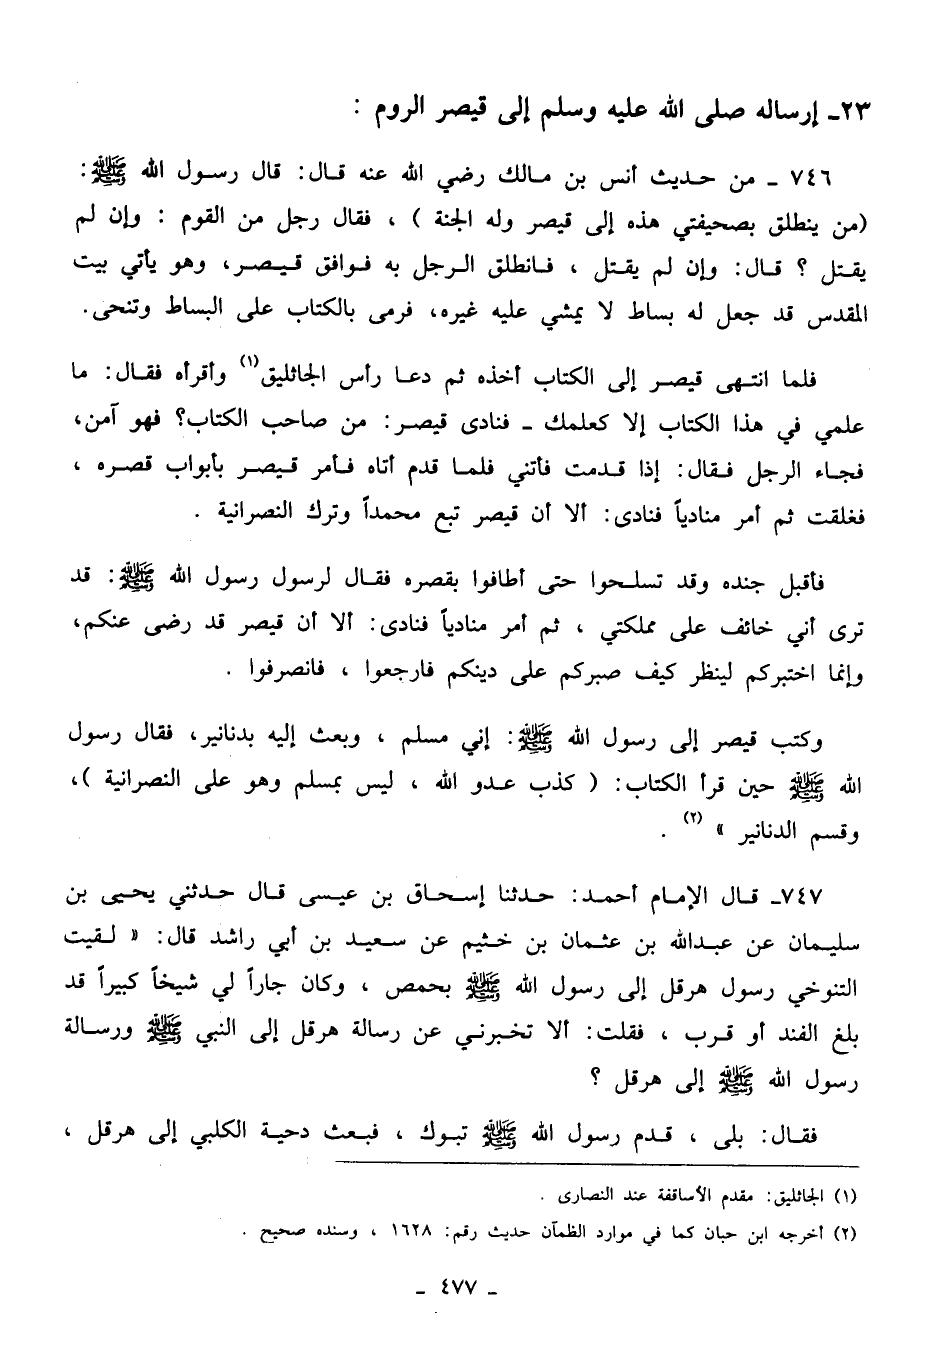 ٢٣ـ إرساله صلى الله عليه وسلم إلى قيصر الروم :
٧٤٦ ـ من حديث أنس بن مالك رضي الله عنه قال: قال رسول الله ﷺ:
(من ينطلق بصحيفتي هذه إلى قيصر وله الجنة ) ، فقال رجل من القوم : وإن لم
يقتل ؟ قال: وإن لم يقتل ، فانطلق الرجل به فوافق قيصر، وهو يأتي بيت
المقدس قد جعل له بساط لا يمشي عليه غيره، فرمى بالكتاب على البساط وتنحى.
فلما انتهى قيصر إلى الكتاب أخذه ثم دعا رأس الجاثليق(١) وأقرأه فقال: ما
علمي في هذا الكتاب إلا كعلمك ـ فنادى قيصر: من صاحب الكتاب؟ فهو آمن،
فجاء الرجل فقال: إذا قدمت فأتني فلما قدم أتاه فأمر قيصر بأبواب قصره ،
فغلقت ثم أمر منادياً فنادى: ألا أن قيصر تبع محمداً وترك النصرانية .
فأقبل جنده وقد تسلحوا حتى أطافوا بقصره فقال لرسول رسول الله ﷺ: قد
ترى أني خائف على مملكتي ، ثم أمر منادياً فنادى: ألا أن قيصر قد رضى عنكم،
وإنما اختبركم لينظر كيف صبركم على دينكم فارجعوا ، فانصرفوا .
وكتب قيصر إلى رسول الله ﷺ: إني مسلم ، وبعث إليه بدنانير، فقال رسول
الله ﷺ حين قرأ الكتاب: ( كذب عدو الله ، ليس بمسلم وهو على النصرانية )،
وقسم الدنانير » (٢) .
٧٤٧ـ قال الإمام أحمد: حدثنا إسحاق بن عيسى قال حدثني يحيى بن
سليمان عن عبدالله بن عثمان بن خثيم عن سعيد بن أبي راشد قال: « لقيت
التنوخي رسول هرقل إلى رسول الله ﷺ بحمص ، وكان جاراً لي شيخاً كبيراً قد
بلغ الفند أو قرب ، فقلت: ألا تخبرني عن رسالة هرقل إلى النبي ﷺ ورسالة
رسول الله ﷺ إلى هرقل ؟
فقال: بلى ، قدم رسول الله ﷺ تبوك ، فبعث دحية الكلبي إلى هرقل ،
(١) الجاثليق: مقدم الأساقفة عند النصارى .
(٢) أخرجه ابن حبان كما في موارد الظمآن حديث رقم: ١٦٢٨ ، وسنده صحيح .
ـ ٤٧٧ ـ